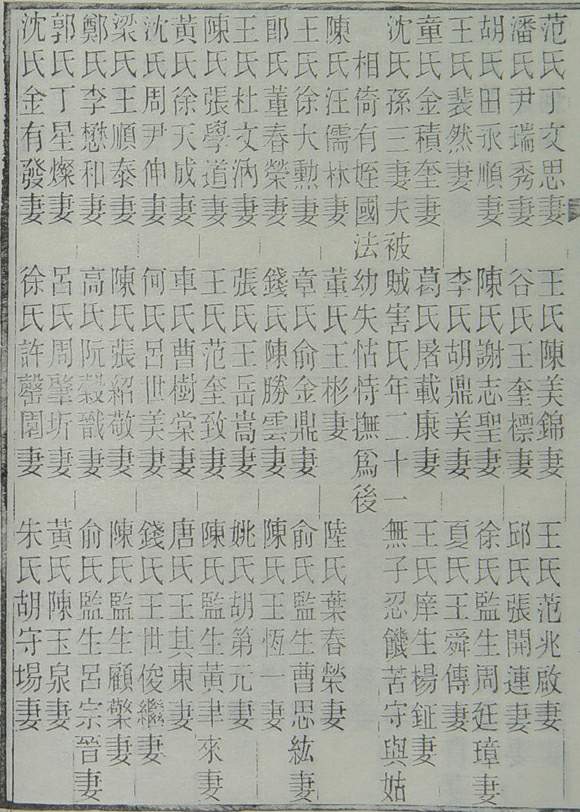 范氏丁文思妻 王氏陳美錦妻 王氏范兆啟妻
潘氏尹瑞秀妻 谷氏王奎標妻 邱氏張開連妻
胡氏田丞順妻 陳氏謝志聖妻 徐氏監生周廷璋妻
王氏裴然妻 李氏胡鼎美妻 夏氏王舜傳妻
童氏金積奎妻 葛氏屠載康妻 王氏庠生楊鉦妻
沈氏孫三妻夫被賊害氏年二十一無子忍饑苦守與姑
相倚有姪國法幼失怙恃撫爲後
陳氏汪儒林妻 董氏王彬妻 陸氏葉春榮妻
王氏徐大勲妻 章氏俞金鼎妻 俞氏監生曹思紘妻
郎氏董春榮妻 錢氏陳勝雲妻 陳氏王恆一妻
王氏杜文汭妻 張氏王岳嵩妻 姚氏胡第元妻
陳氏張學道妻 王氏范奎致妻 陳氏監生黃聿來妻
黃氏徐天成妻 車氏曹樹棠妻 唐氏王其東妻
沈氏周尹伸妻 何氏呂世美妻 錢氏王世俊繼妻
梁氏王順泰妻 陳氏張紹敬妻 陳氏監生顧檠妻
鄭氏李懋和妻 高氏阮穀戩妻 俞氏監生呂宗晉妻
郭氏丁星燦妻 呂氏周肇圻妻 黃氏陳玉泉妻
沈氏金有發妻 徐氏許妻 朱氏胡守場妻